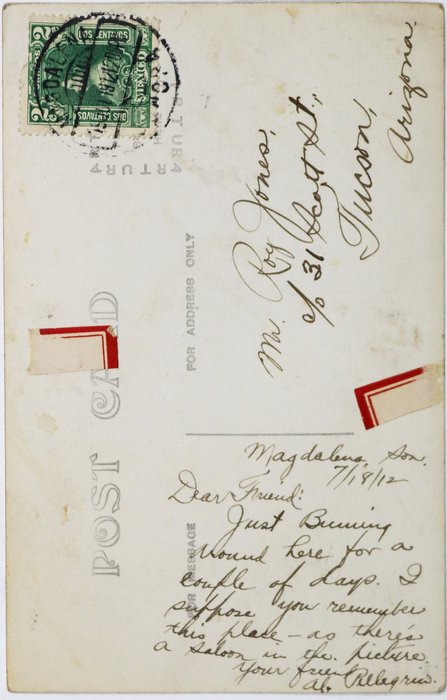 DOS CENTAVOS
MEXICO
DOS CENTAVOS
POST CARD
FOR ADDRESS ONLY
Mr. Roy Jones,
c/o 31 Scott St.,
Tucson,
Arizona.
FOR MESSAGE
Magdalena, Son.
7/18/12
Dear Friend:
Just Bumming
round here for a
couple of days. I
suppose you remember
this place – as there's
a saloon in the picture
Your friend
Al. Pellegrin.